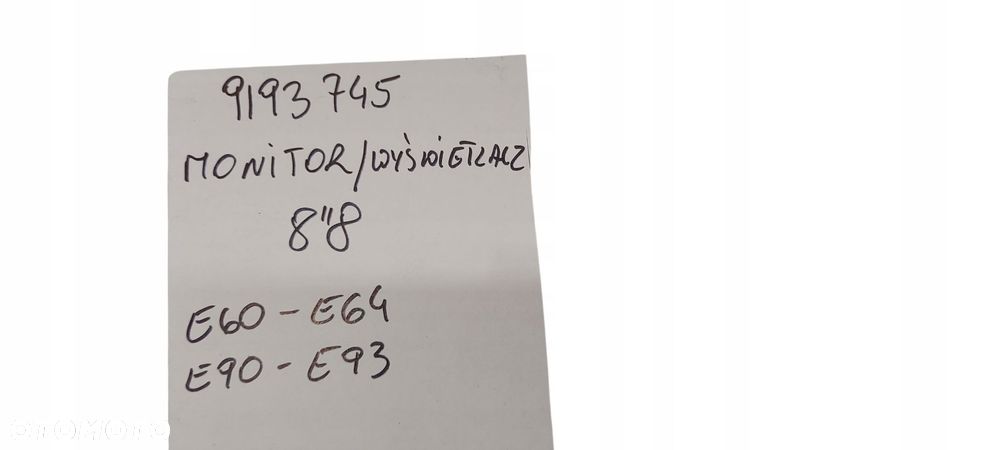 9193745
MONITOR/WYŚWIETLACZ
8"8
E60 - E64
E90 - E93
OTOMOTO